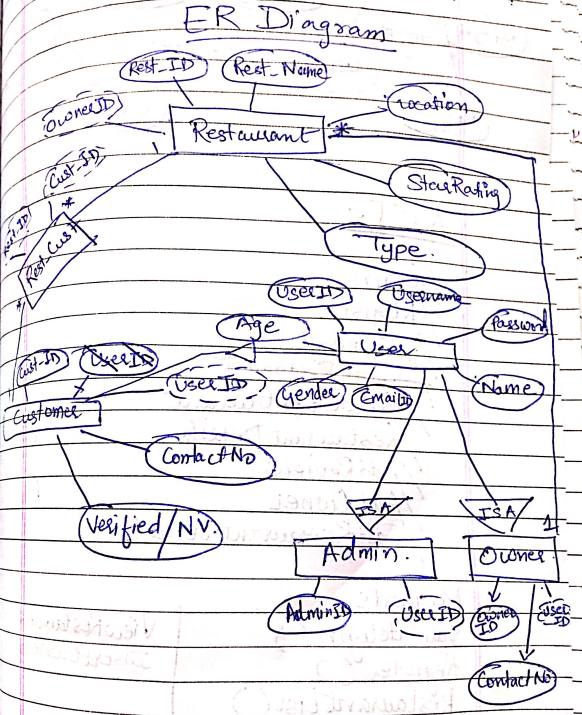 ER Diagram
Rest_ID
Rest_Name
Location
OwnerID
Restaurant
*
1
Cust_ID
*
StarRating
Rest_ID
Rest_Cust
*
Type.
UserID
Username
Password
Age
User
Cust_ID
UserID
UserID
Gender
EmailID
Name
Customer
ContactNo
Verified/NV.
ISA
ISA
1
Admin.
Owner
AdminID
UserID
Owner
ID
User
ID
ContactNo